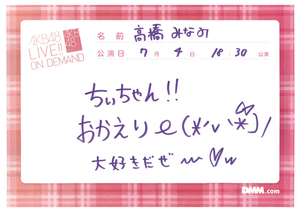 AKB48
LIVE!!
ON DEMAND
AKB48
名前 高橋みなみ
公演日 7月4日 18:30公演
ちぃちゃん!!
おかえりe(*'v'*)/
大好きだぜ〜♡w
DMM.com